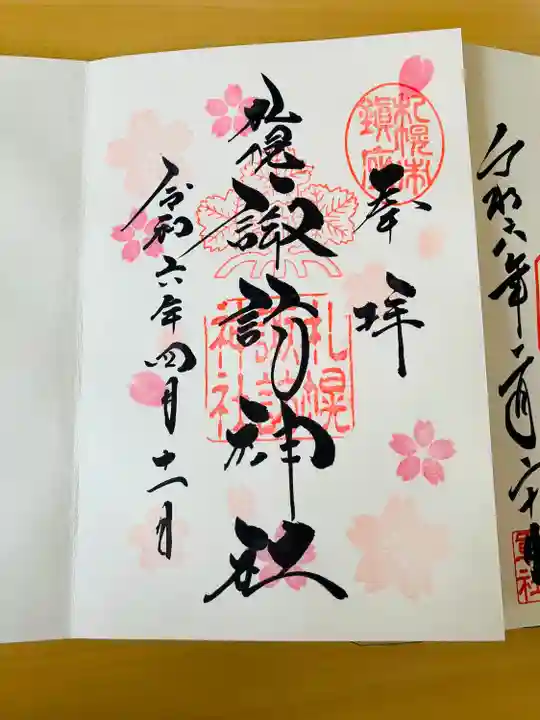 札幌市
鎮座
奉拝
札幌諏訪神社
札幌
諏訪
神社
令和六年四月十一日